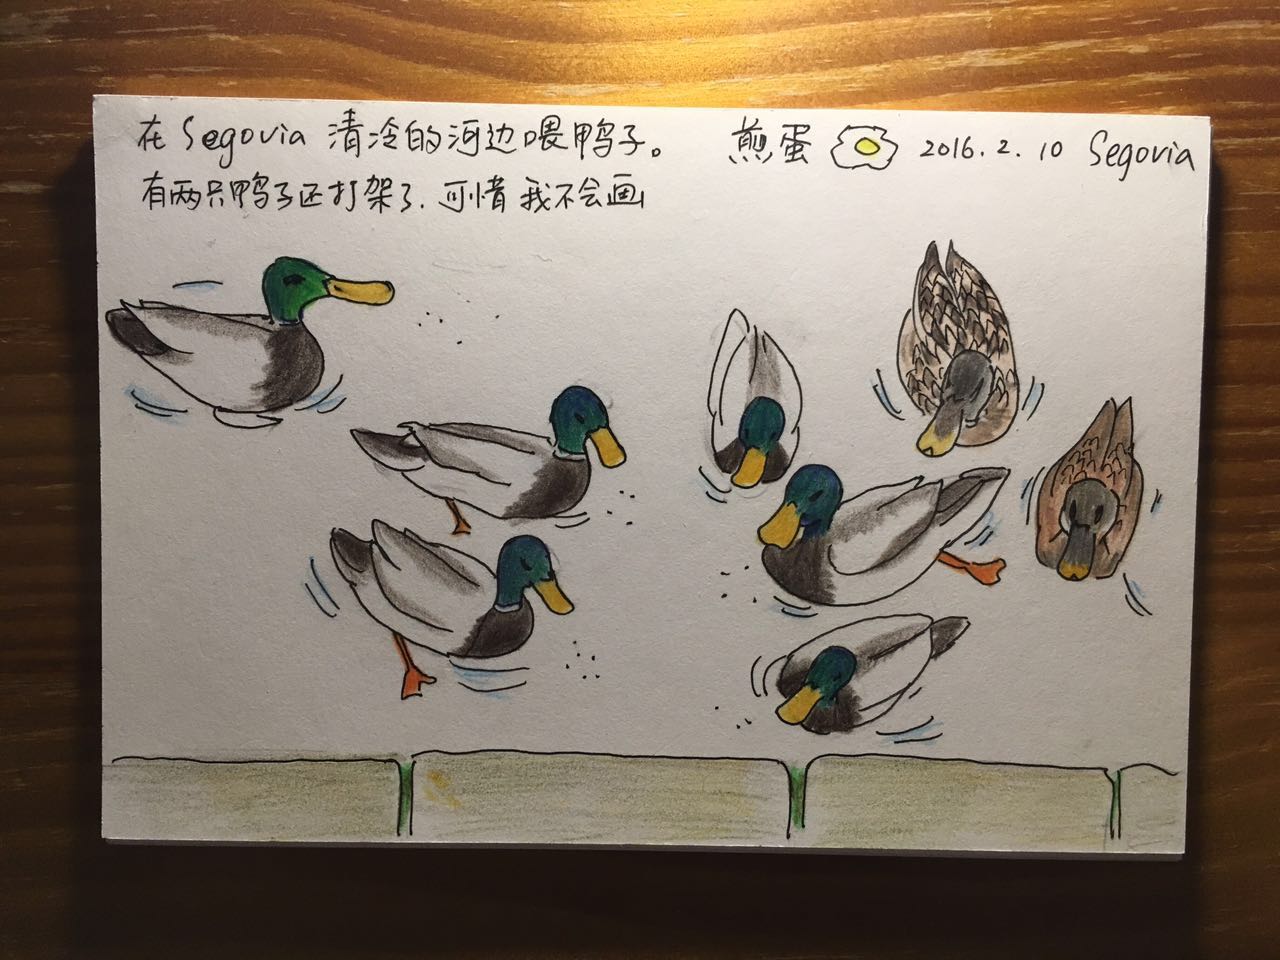 在 Segovia 清冷的河边喂鸭子。
有两只鸭子还打架了.可惜我不会画
煎蛋 2016.2.10 Segovia